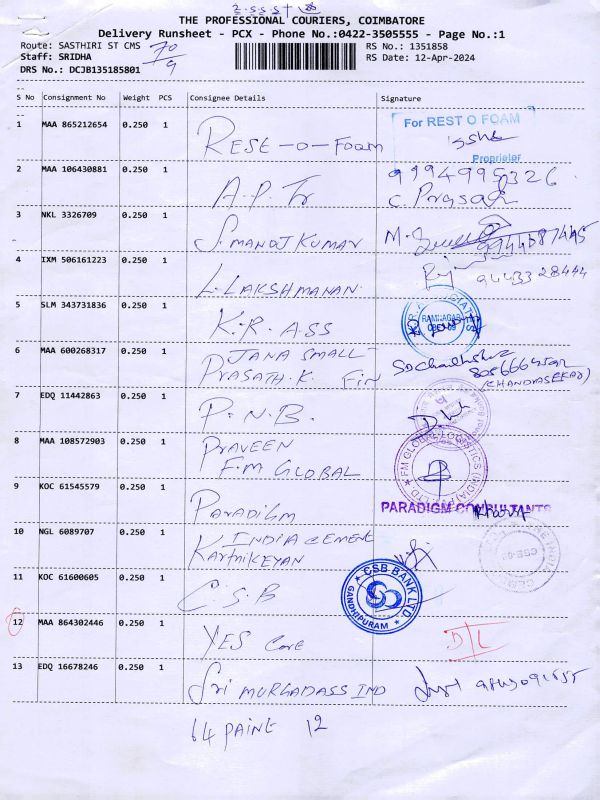 THE PROFESSIONAL COURIERS, COIMBATORE
Delivery Runsheet - PCX - Phone No.:0422-3505555 - Page No.:1
Route: SASTHIRI ST CMS
RS No.: 1351858
Staff: SRIDHA
RS Date: 12-Apr-2024
DRS No.: DCJB135185801
70/9
S No Consignment No Weight PCS Consignee Details Signature
1 MAA 865212654 0.250 1 REST-O-FOAM
For REST O FOAM
Proprietor
2 MAA 106430881 0.250 1 A.P. Tr
9994995326
C. Prasad
3 NKL 3326709 0.250 1 S. MANOJ KUMAR
4 IXM 506161223 0.250 1 L. LAKSHMANAN.
94433 28444
5 SLM 343731836 0.250 1 K.R. ASS
RAMNAGAR
6 MAA 600268317 0.250 1 JANA SMALL FIN
PRASATH.K.
(CHANDRASEKAR)
7 EDQ 11442863 0.250 1 P.N.B.
8 MAA 108572903 0.250 1 PRAVEEN
F.M GLOBAL
FM GLOBAL LOGISTICS (INDIA) PVT. LTD
9 KOC 61545579 0.250 1 PARADIGM
PARADIGM CONSULTANTS
10 NGL 6089707 0.250 1 INDIA CEMENT
KARTHIKEYAN
11 KOC 61600605 0.250 1 C.S.B
CSB BANK LTD
GANDHIPURAM
12 MAA 864302446 0.250 1 YES Care
D/L
13 EDQ 16678246 0.250 1 Sri MURGADASS IND
64 PAINE 12